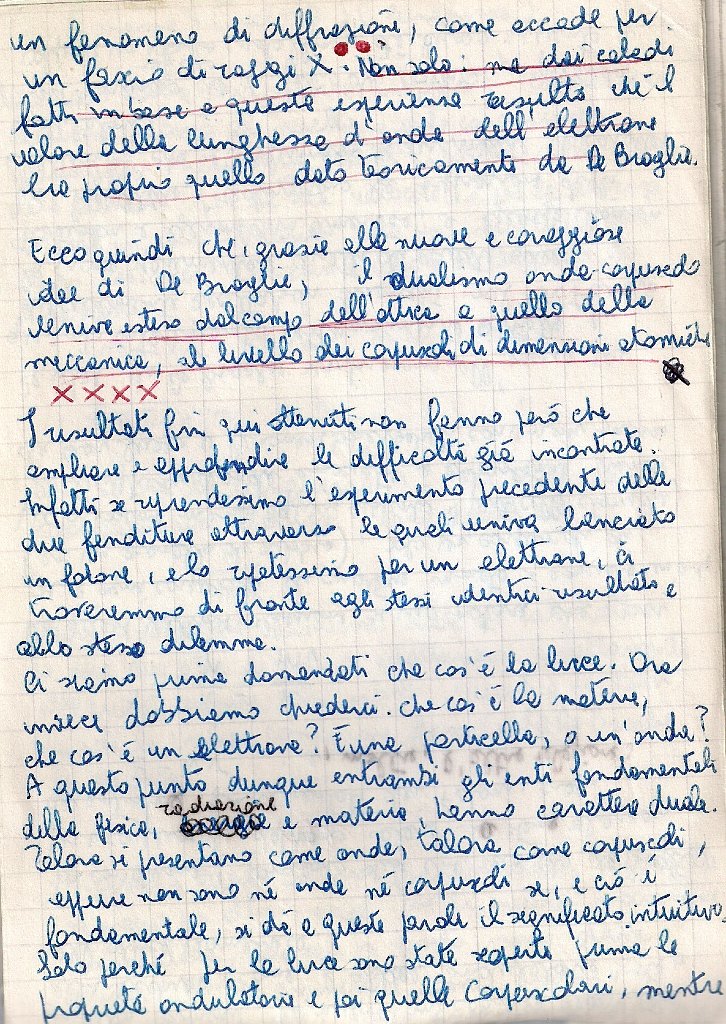 un fenomeno di diffrazione, come accade per
un fascio di raggi X. Non solo: ma dai calcoli
fatti in base a questa esperienza risultò che il
valore della lunghezza d'onda dell'elettrone
era proprio quello dato teoricamente da De Broglie.
Ecco quindi che, grazie alle nuove e coraggiose
idee di De Broglie, il dualismo onda-corpuscolo
veniva esteso dal campo dell'ottica a quello della
meccanica, al livello dei corpuscoli di dimensioni atomiche
X X X X
I risultati fin qui ottenuti non fanno però che
ampliare e approfondire le difficoltà già incontrate.
Infatti se riprendessimo l'esperimento precedente delle
due fenditure attraverso le quali veniva lanciato
un fotone, e lo ripetessimo per un elettrone, ci
troveremmo di fronte agli stessi identici risultati e
allo stesso dilemma.
Ci siamo prima domandati che cos'è la luce. Ora
invece dobbiamo chiederci: che cos'è la materia,
che cos'è un elettrone? È una particella, o un'onda?
A questo punto dunque entrambi gli enti fondamentali
della fisica, radiazione e materia, hanno carattere duale.
Talora si presentano come onde, talora come corpuscoli,
oppure non sono né onde né corpuscoli se, e ciò è
fondamentale, si dà a queste parole il significato intuitivo.
Solo perché per la luce sono state scoperte prima le
proprietà ondulatorie e poi quelle corpuscolari, mentre